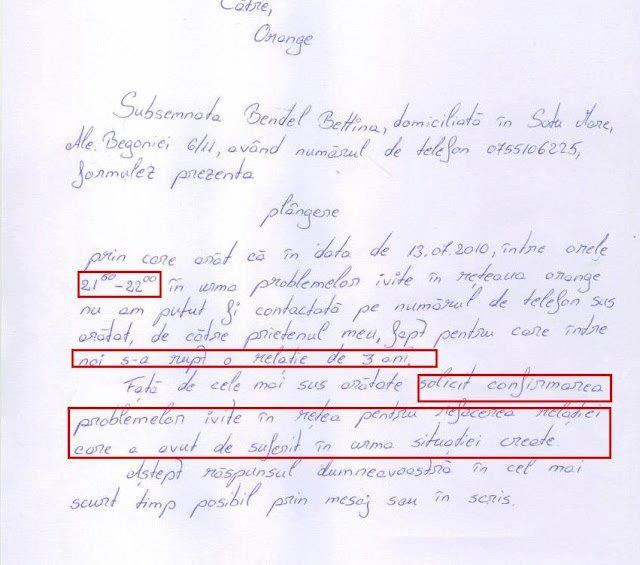 Către,
Orange
Subsemnata Bendel Bettina, domiciliată în Satu Mare,
Ale. Begoniei 6/11, având numărul de telefon 0755106225,
formulez prezenta
plângere
prin care arăt că în data de 13.07.2010, între orele
21⁵⁰-22⁰⁰ în urma problemelor ivite în rețeaua orange
nu am putut fi contactată pe numărul de telefon sus
arătat, de către prietenul meu, fapt pentru care între
noi s-a rupt o relație de 3 ani.
Față de cele mai sus arătate solicit confirmarea
problemelor ivite în rețea pentru refacerea relației
care a avut de suferit în urma situației create.
Aștept răspunsul dumneavoastră în cel mai
scurt timp posibil prin mesaj sau în scris.